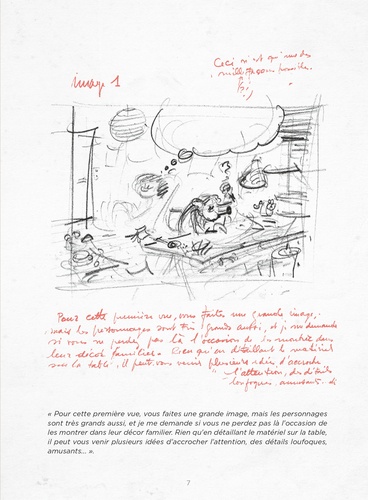 Ceci n'est qu'une des
millefaçons possibles.
image 1
Pour cette première vue, vous faites une grande image,
mais les personnages sont très grands aussi, et je me demande
si vous ne perdez pas là l'occasion de les montrer dans
leur décor familier. Rien qu'en détaillant le matériel
sur la table, il peut vous venir plusieurs idées d'accrocher
l'attention, des détails
loufoques, amusants...
« Pour cette première vue, vous faites une grande image, mais les personnages
sont très grands aussi, et je me demande si vous ne perdez pas là l'occasion de
les montrer dans leur décor familier. Rien qu'en détaillant le matériel sur la table,
il peut vous venir plusieurs idées d'accrocher l'attention, des détails loufoques,
amusants... ».
7